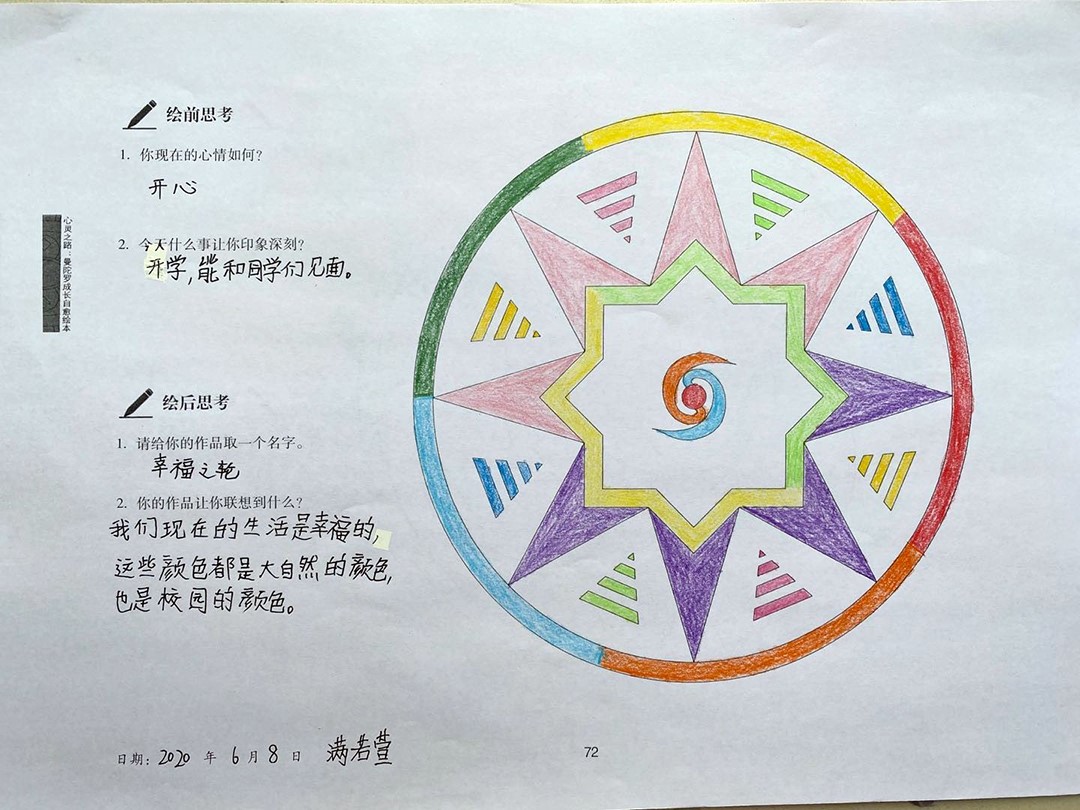 绘前思考
1. 你现在的心情如何?
开心
2. 今天什么事让你印象深刻?
开学,能和同学们见面。
心灵之路:曼陀罗成长自愈绘本
绘后思考
1. 请给你的作品取一个名字。
幸福之艳
2. 你的作品让你联想到什么?
我们现在的生活是幸福的,
这些颜色都是大自然的颜色,
也是校园的颜色。
日期: 2020 年 6 月 8 日 满若萱
72